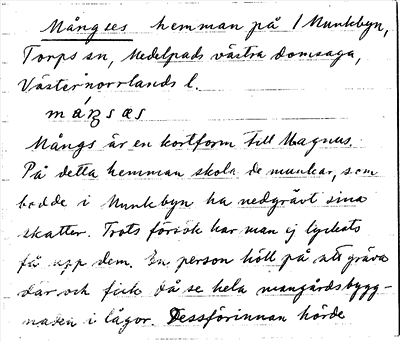 Mångses hemman på 1 Munkbyn,
Torps sn, Medelpads västra domsaga,
Västernorrlands l.
Mångs är en kortform till Magnus.
På detta hemman skola de munkar, som
bodde i Munkbyn ha nedgrävt sina
skatter. Trots försök har man ej lyckats
få upp dem. En person höll på att gräva
där och fick då se hela mangårdsbygg-
naden i lågor. Dessförinnan hörde